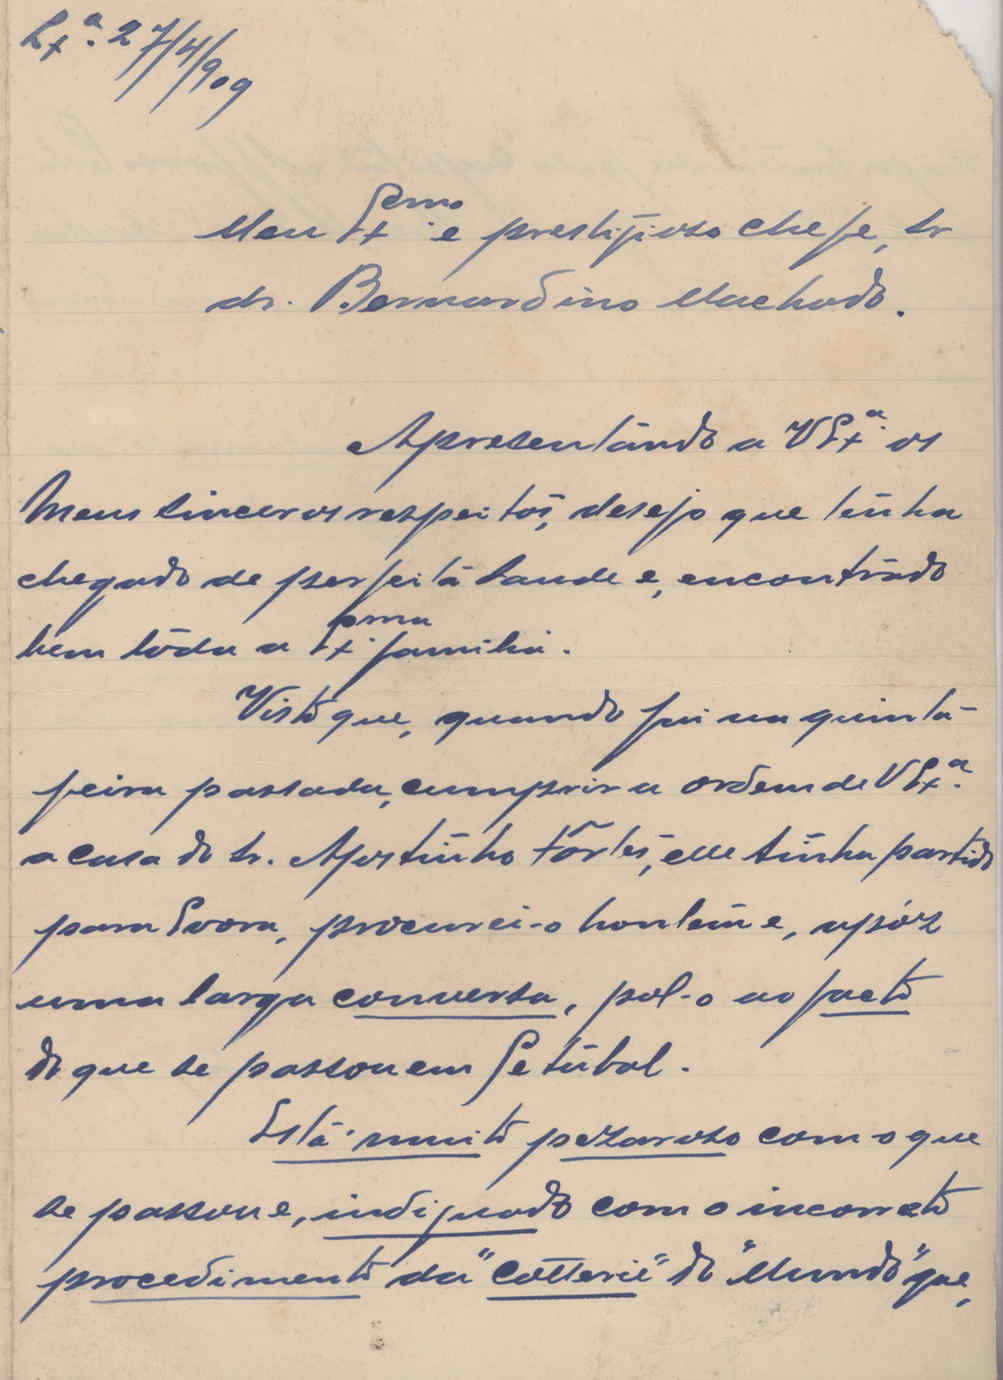 Lxª. 27/4/909
Meu Exmo. e prestijioso chefe, sr
dr. Bernardino Machado.
Apresentando a V Exª. os
meus sinceros respeitos, desejo que tenha
chegado de perfeita saude e, encontrado
bem tôda a Exma. familia.
Visto que, quando fui na quinta-
feira passada, cumprir a ordem de V Exª.
a casa do sr. Agostinho Fortes, elle tinha partido
para Evora, procurei-o hontem e, apóz
uma larga conversa, pul-o ao facto
do que se passou em Setubal.
Está muito pezaroso com o que
se passou e, indignado com o incorreto
procedimento da "Cotterie" do "Mundo" que,